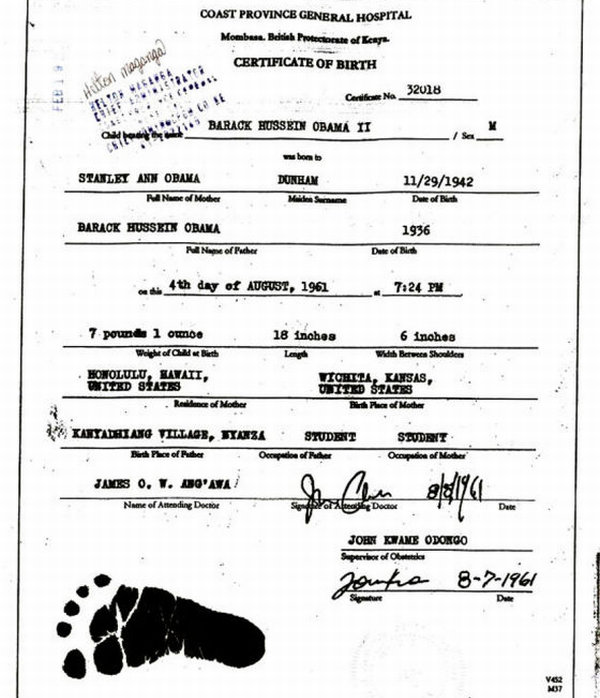 COAST PROVINCE GENERAL HOSPITAL
Mombasa. British Protectorate of Kenya.
CERTIFICATE OF BIRTH
Certificate No. 32018
Hilton Maganga
FEB 19
CHIEF ADMINISTRATOR
Child bearing the name BARACK HUSSEIN OBAMA II / Sex M
was born to
STANLEY ANN OBAMA DUNHAM 11/29/1942
Full Name of Mother Maiden Surname Date of Birth
BARACK HUSSEIN OBAMA 1936
Full Name of Father Date of Birth
on this 4th day of AUGUST, 1961 at 7:24 PM
7 pounds 1 ounce 18 inches 6 inches
Weight of Child at Birth Length Width Between Shoulders
HONOLULU, HAWAII, WICHITA, KANSAS,
UNITED STATES UNITED STATES
Residence of Mother Birth Place of Mother
KANYADHIANG VILLAGE, NYANZA STUDENT STUDENT
Birth Place of Father Occupation of Father Occupation of Mother
JAMES O. W. ANG'AWA 8/8/1961
Name of Attending Doctor Signature of Attending Doctor Date
JOHN KWAME ODONGO
Supervisor of Obstetrics
8-7-1961
Signature Date
V452
M37